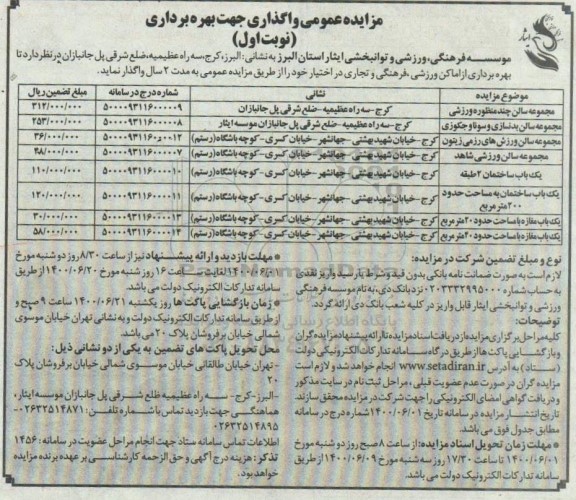 مزایده عمومی واگذاری جهت بهره برداری
(نوبت اول)
موسسه فرهنگی، ورزشی و توانبخشی ایثار استان البرز به نشانی: البرز، کرج، سه راه عظیمیه، ضلع شرقی پل جانبازان در نظر دارد تا
بهره برداری از اماکن ورزشی، فرهنگی و تجاری در اختیار خود را از طریق مزایده عمومی به مدت ۲ سال واگذار نماید.
موضوع مزایده نشانی شماره درج در سامانه مبلغ تضمین ریال
مجموعه سالن چند منظوره ورزشی کرج - سه راه عظیمیه - ضلع شرقی پل جانبازان ۵۰۰۰۰۹۳۱۱۶۰۰۰۰۰۹ ۳۱۲/۰۰۰/۰۰۰
مجموعه سالن بدنسازی و سونا و جکوزی کرج - سه راه عظیمیه - ضلع شرقی پل جانبازان موسسه ایثار ۵۰۰۰۰۹۳۱۱۶۰۰۰۰۰۸ ۲۵۳/۰۰۰/۰۰۰
مجموعه سالن ورزش های رزمی زیتون کرج - خیابان شهید بهشتی - جهانشهر - خیابان کسری - کوچه باشگاه (رستم) ۳۶/۰۰۰/۰۰۰
مجموعه سالن ورزشی شاهد کرج - خیابان شهید بهشتی - جهانشهر - خیابان کسری - کوچه باشگاه (رستم) ۵۰۰۰۰۹۳۱۱۶۰۰۰۰۰۷ ۴۸/۰۰۰/۰۰۰
یک باب ساختمان ۲ طبقه کرج - خیابان شهید بهشتی - جهانشهر - خیابان کسری - کوچه باشگاه (رستم) ۵۰۰۰۰۹۳۱۱۶۰۰۰۰۱۰ ۱۱۰/۰۰۰/۰۰۰
یک باب ساختمان به مساحت حدود ۲۰۰ متر مربع کرج - خیابان شهید بهشتی - جهانشهر - خیابان کسری - کوچه باشگاه (رستم) ۵۰۰۰۰۹۳۱۱۶۰۰۰۰۱۱ ۱۲۰/۰۰۰/۰۰۰
یک باب مغازه با مساحت حدود ۲۰ متر مربع کرج - خیابان شهید بهشتی - جهانشهر - خیابان کسری - کوچه باشگاه (رستم) ۵۰۰۰۰۹۳۱۱۶۰۰۰۰۱۳ ۳۰/۰۰۰/۰۰۰
یک باب مغازه با مساحت حدود ۴۰ متر مربع کرج - خیابان شهید بهشتی - جهانشهر - خیابان کسری - کوچه باشگاه (رستم) ۵۰۰۰۰۹۳۱۱۶۰۰۰۰۱۴ ۵۸/۰۰۰/۰۰۰
نوع و مبلغ تضمین شرکت در مزایده:
لازم است به صورت ضمانت نامه بانکی بدون قید و شرط یا رسید واریز نقدی
به حساب شماره ۰۲۰۳۳۳۲۹۹۵۰۰۰ نزد بانک دی، به نام موسسه فرهنگی
ورزشی و توانبخشی ایثار قابل واریز در کلیه شعب بانک دی ارائه گردد.
توضیحات:
کلیه مراحل برگزاری مزایده از دریافت اسناد مزایده تا ارائه پیشنهاد مزایده گران
و بازگشایی پاکت ها از طریق درگاه سامانه تدارکات الکترونیکی دولت
(ستاد) به آدرس www.setadiran.ir انجام خواهد شد و لازم است
مزایده گران در صورت عدم عضویت قبلی، مراحل ثبت نام در سایت مذکور
و دریافت گواهی امضای الکترونیکی را جهت شرکت در مزایده محقق سازند.
تاریخ انتشار مزایده در سامانه تاریخ ۱۴۰۰/۰۶/۰۱ شماره درج در سامانه
مطابق جدول فوق می باشد.
• مهلت زمان تحویل اسناد مزایده: از ساعت ۸ صبح روز دو شنبه مورخ
۱۴۰۰/۰۶/۰۱ تا ساعت ۱۷/۳۰ روز سه شنبه مورخ ۱۴۰۰/۰۶/۰۹ از طریق
سامانه تدارکات الکترونیک دولت می باشد.
• مهلت بازدید و ارائه پیشنهاد نیز از ساعت ۸/۳۰ روز دو شنبه مورخ
۱۴۰۰/۰۶/۰۱ لغایت ساعت ۱۶ روز شنبه مورخ ۱۴۰۰/۰۶/۲۰ از طریق
سامانه تدارکات الکترونیک دولت می باشد.
• زمان بازگشایی پاکت ها روز یکشنبه ۱۴۰۰/۰۶/۲۱ ساعت ۹ صبح و
از طریق سامانه تدارکات الکترونیک دولت و به نشانی تهران خیابان موسوی
شمالی خیابان برفروشان پلاک ۲۰ می باشد.
محل تحویل پاکت های تضمین به یکی از دو نشانی ذیل:
- تهران خیابان طالقانی خیابان موسوی شمالی خیابان برفروشان پلاک
۲۰
- البرز - کرج - سه راه عظیمیه ضلع شرقی پل جانبازان موسسه ایثار،
هماهنگی جهت بازدید تماس با شماره تلفن: ۰۲۶۳۲۵۱۴۸۷۱-
۰۲۶۳۲۵۱۴۸۹۵
اطلاعات تماس سامانه ستاد جهت انجام مراحل عضویت در سامانه: ۱۴۵۶
تذکر: هزینه درج آگهی و حق الزحمه کارشناسی بر عهده برنده مزایده
خواهد بود.